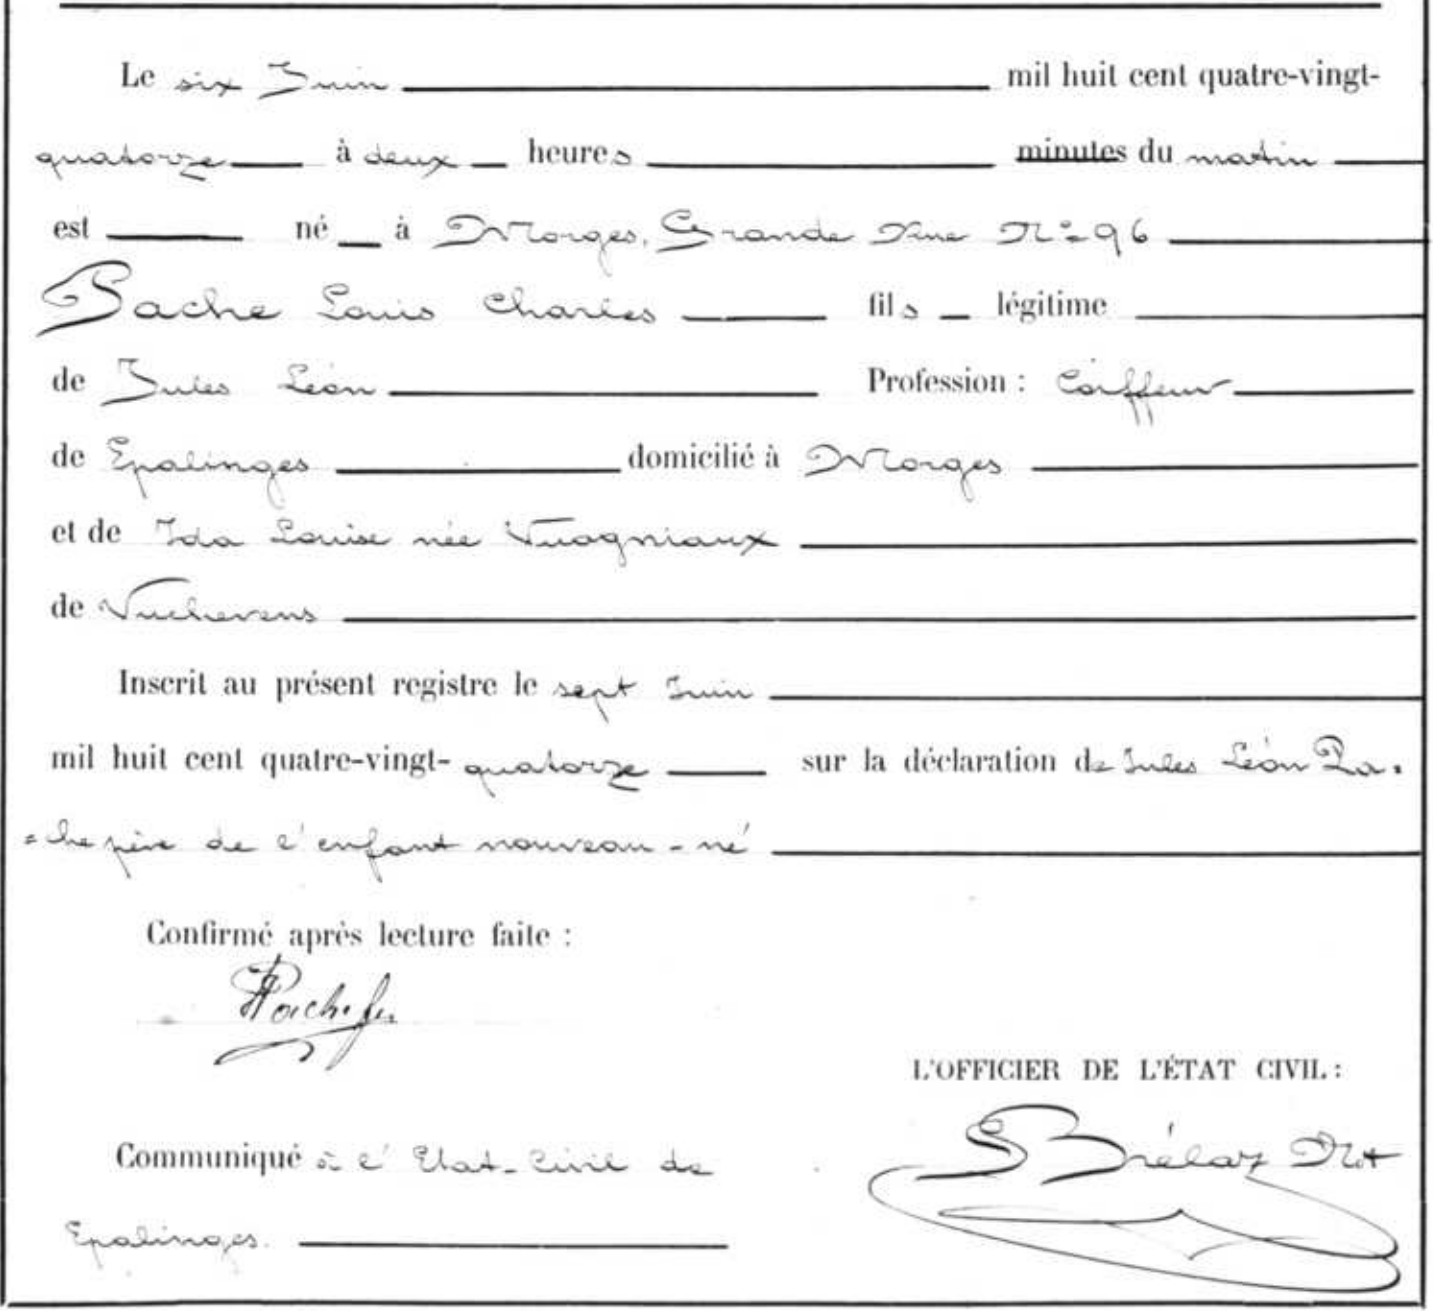 Le six Juin mil huit cent quatre-vingt-
quatorze à deux heures minutes du matin
est né à Morges, Grande Rue No 96
Pache Louis Charles fils légitime
de Jules Léon Profession : Coiffeur
de Epalinges domicilié à Morges
et de Ida Louise née Vuagniaux
de Vucherens
Inscrit au présent registre le sept Juin
mil huit cent quatre-vingt-quatorze sur la déclaration de Jules Léon Pa=
=che père de l'enfant nouveau-né
Confirmé après lecture faite :
L'OFFICIER DE L'ÉTAT CIVIL :
Communiqué à l'Etat-Civil de
Brélaz Not
Epalinges.